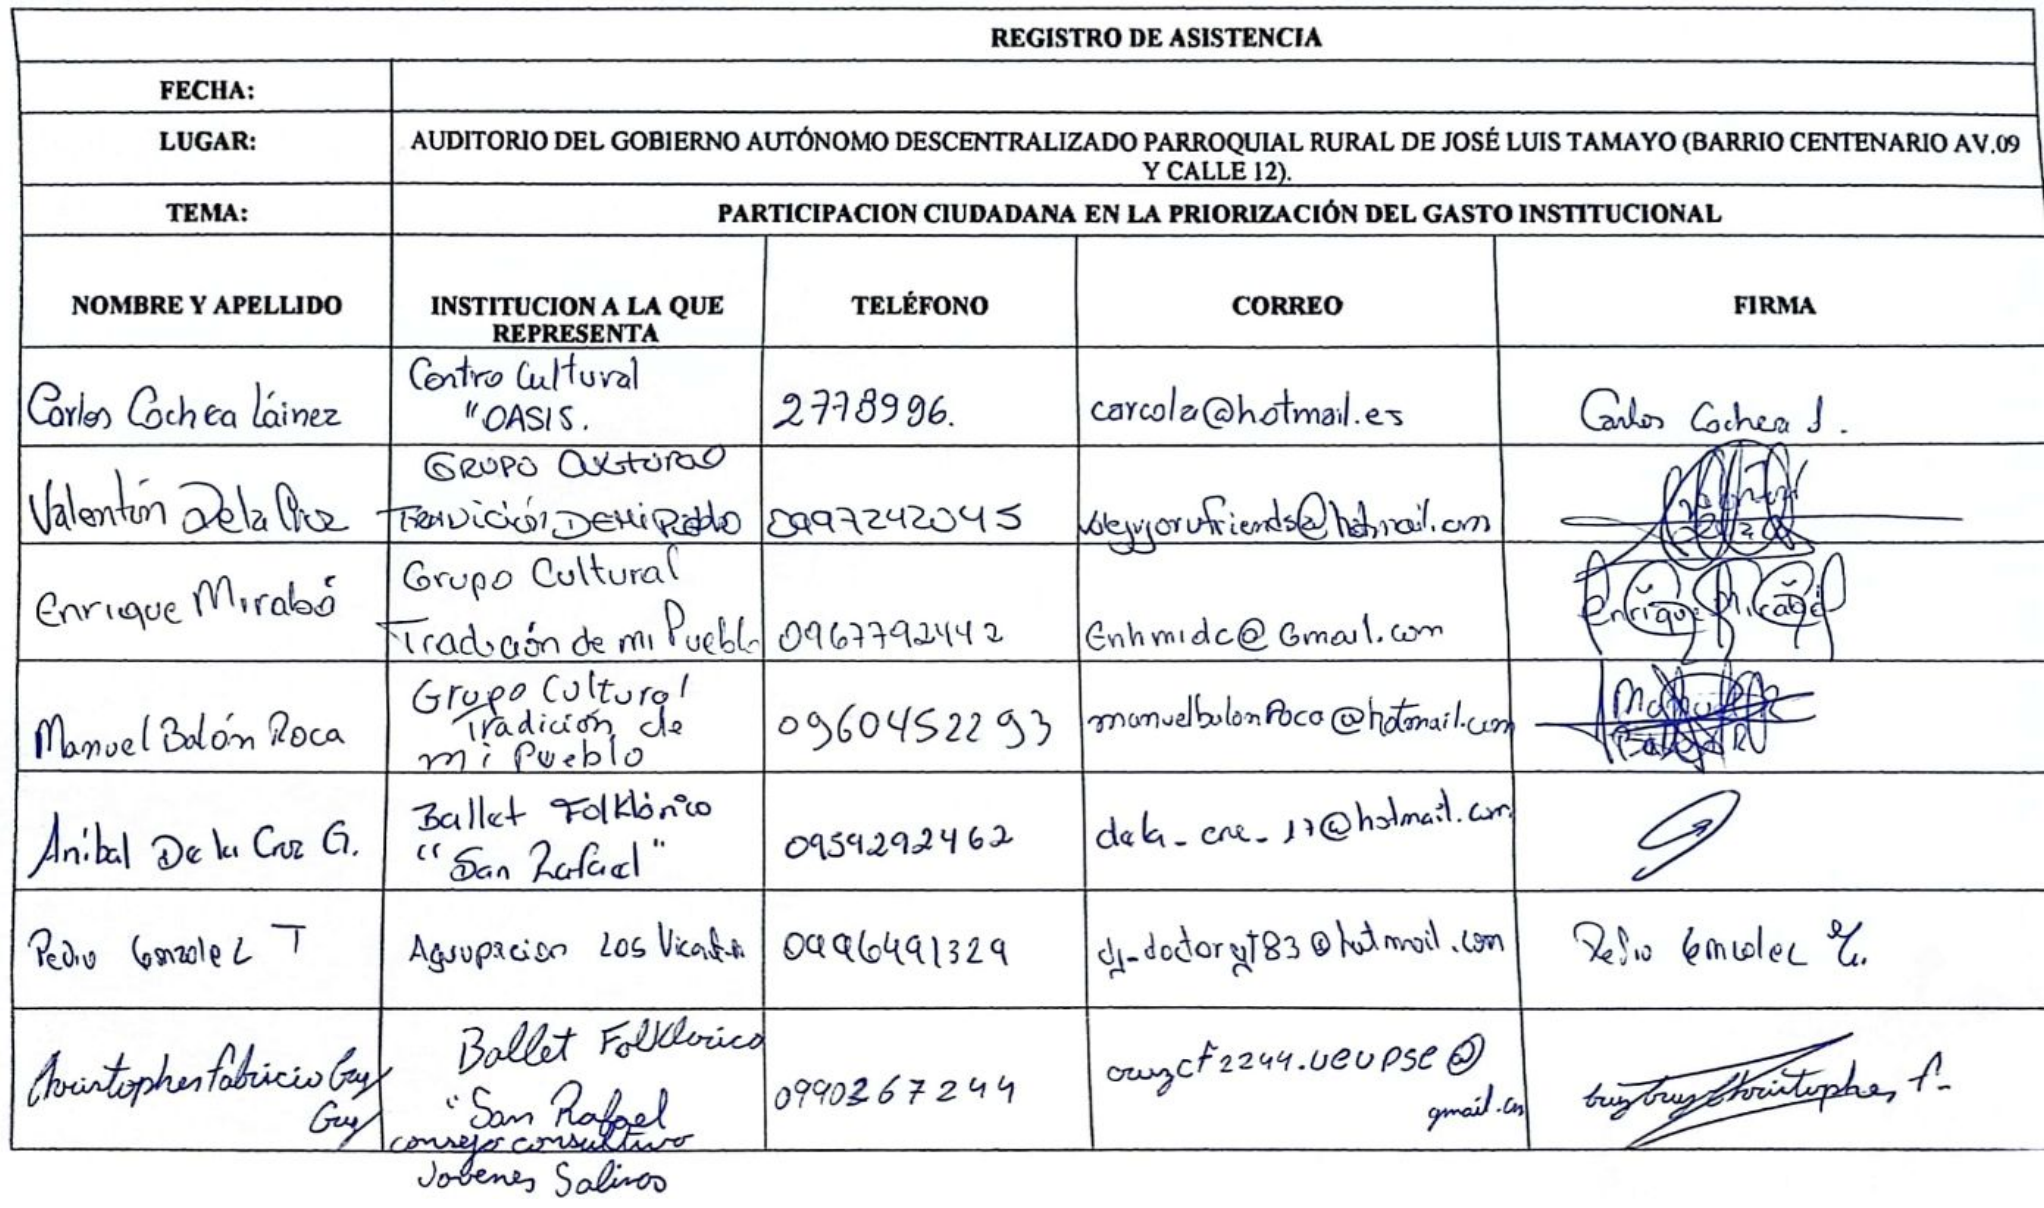 REGISTRO DE ASISTENCIA
FECHA:
LUGAR: AUDITORIO DEL GOBIERNO AUTÓNOMO DESCENTRALIZADO PARROQUIAL RURAL DE JOSÉ LUIS TAMAYO (BARRIO CENTENARIO AV.09
Y CALLE 12).
TEMA: PARTICIPACION CIUDADANA EN LA PRIORIZACIÓN DEL GASTO INSTITUCIONAL
NOMBRE Y APELLIDO
INSTITUCION A LA QUE
REPRESENTA
TELÉFONO
CORREO
FIRMA
Carlos Cochea Láinez
Centro Cultural
"OASIS.
2778996.
carcola@hotmail.es
Carlos Cochea L.
Valentín De la Cruz
GRUPO CULTURAL
TRADICIÓN DE MI PUEBLO
0997242045
Enrique Mirabá
Grupo Cultural
Tradición de mi Pueblo
0967792442
Enhmidc@Gmail.com
Enrique
Manuel Balón Roca
Grupo Cultural
Tradición de
mi Pueblo
0960452293
manuelbalonRoca@hotmail.com
Aníbal De la Cruz G.
Ballet Folklórico
"San Rafael"
0959292462
Pedro Gonzalez T
Agrupacion Los
0996491329
Pedro Gonzalez
Christopher Fabricio Cruz
Cruz
Ballet Folklorico
"San Rafael
consejo consultivo
Jovenes Salinas
0990267244
cruzcf2244.ueupse@
gmail.com
Cruz Cruz Christopher f.